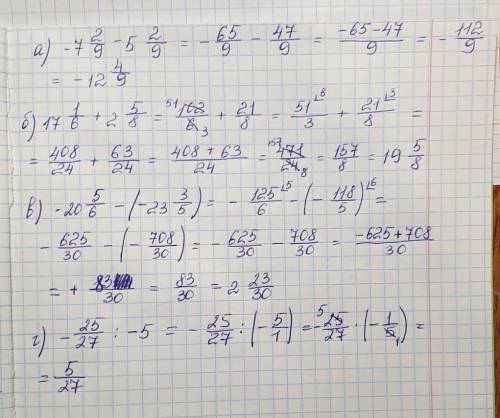 а) -7 2/9 - 5 2/9 = -65/9 - 47/9 = (-65-47)/9 = -112/9
= -12 4/9
б) 17 1/6 + 2 5/8 = 51 102/6 3 + 21/8 = 51/3 ⌞8 + 21/8 ⌞3 =
= 408/24 + 63/24 = (408+63)/24 = 157 471/24 8 = 157/8 = 19 5/8
в) -20 5/6 - (-23 3/5) = -125/6 ⌞5 - (-118/5) ⌞6 =
-625/30 - (-708/30) = -625/30 - 708/30 = (-625+708)/30
= + 83/30 = 83/30 = 2 23/30
г) -25/27 : -5 = -25/27 : (-5/1) = -5 25/27 · (-1/5 1) =
= 5/27